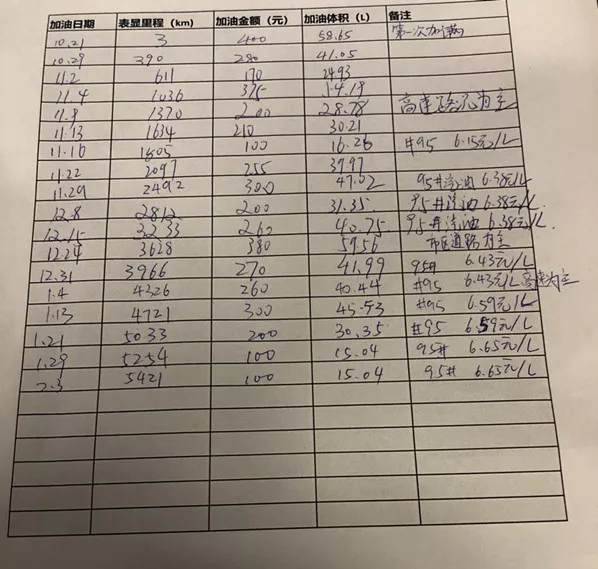 加油日期 表显里程（km) 加油金额（元) 加油体积（L) 备注
10.21 3 400 58.65 第一次加满
10.29 390 280 41.05
11.2 611 170 2493
11.4 1036 375
11.9 1370 200 28.78 高速路况为主
11.13 1634 210 30.21
11.16 1805 100 16.26 #95 6.15元/L
11.22 2097 255 37.97
11.29 2492 300 47.02 95#汽油 6.38元/L
12.8 2812 200 31.35 95#汽油 6.38元/L
12.15 3233 260 40.75 95#汽油 6.38元/L
12.24 3628 380 59.56 市区道路为主
12.31 3966 270 41.99 95# 6.43元/L
1.4 4326 260 40.44 #95 6.43元/L 高速为主
1.13 4721 300 45.53 #95 6.59元/L
1.21 5033 200 30.35 #95 6.59元/L
1.29 5254 100 15.04 95# 6.65元/L
2.3 5421 100 15.04 95# 6.65元/L